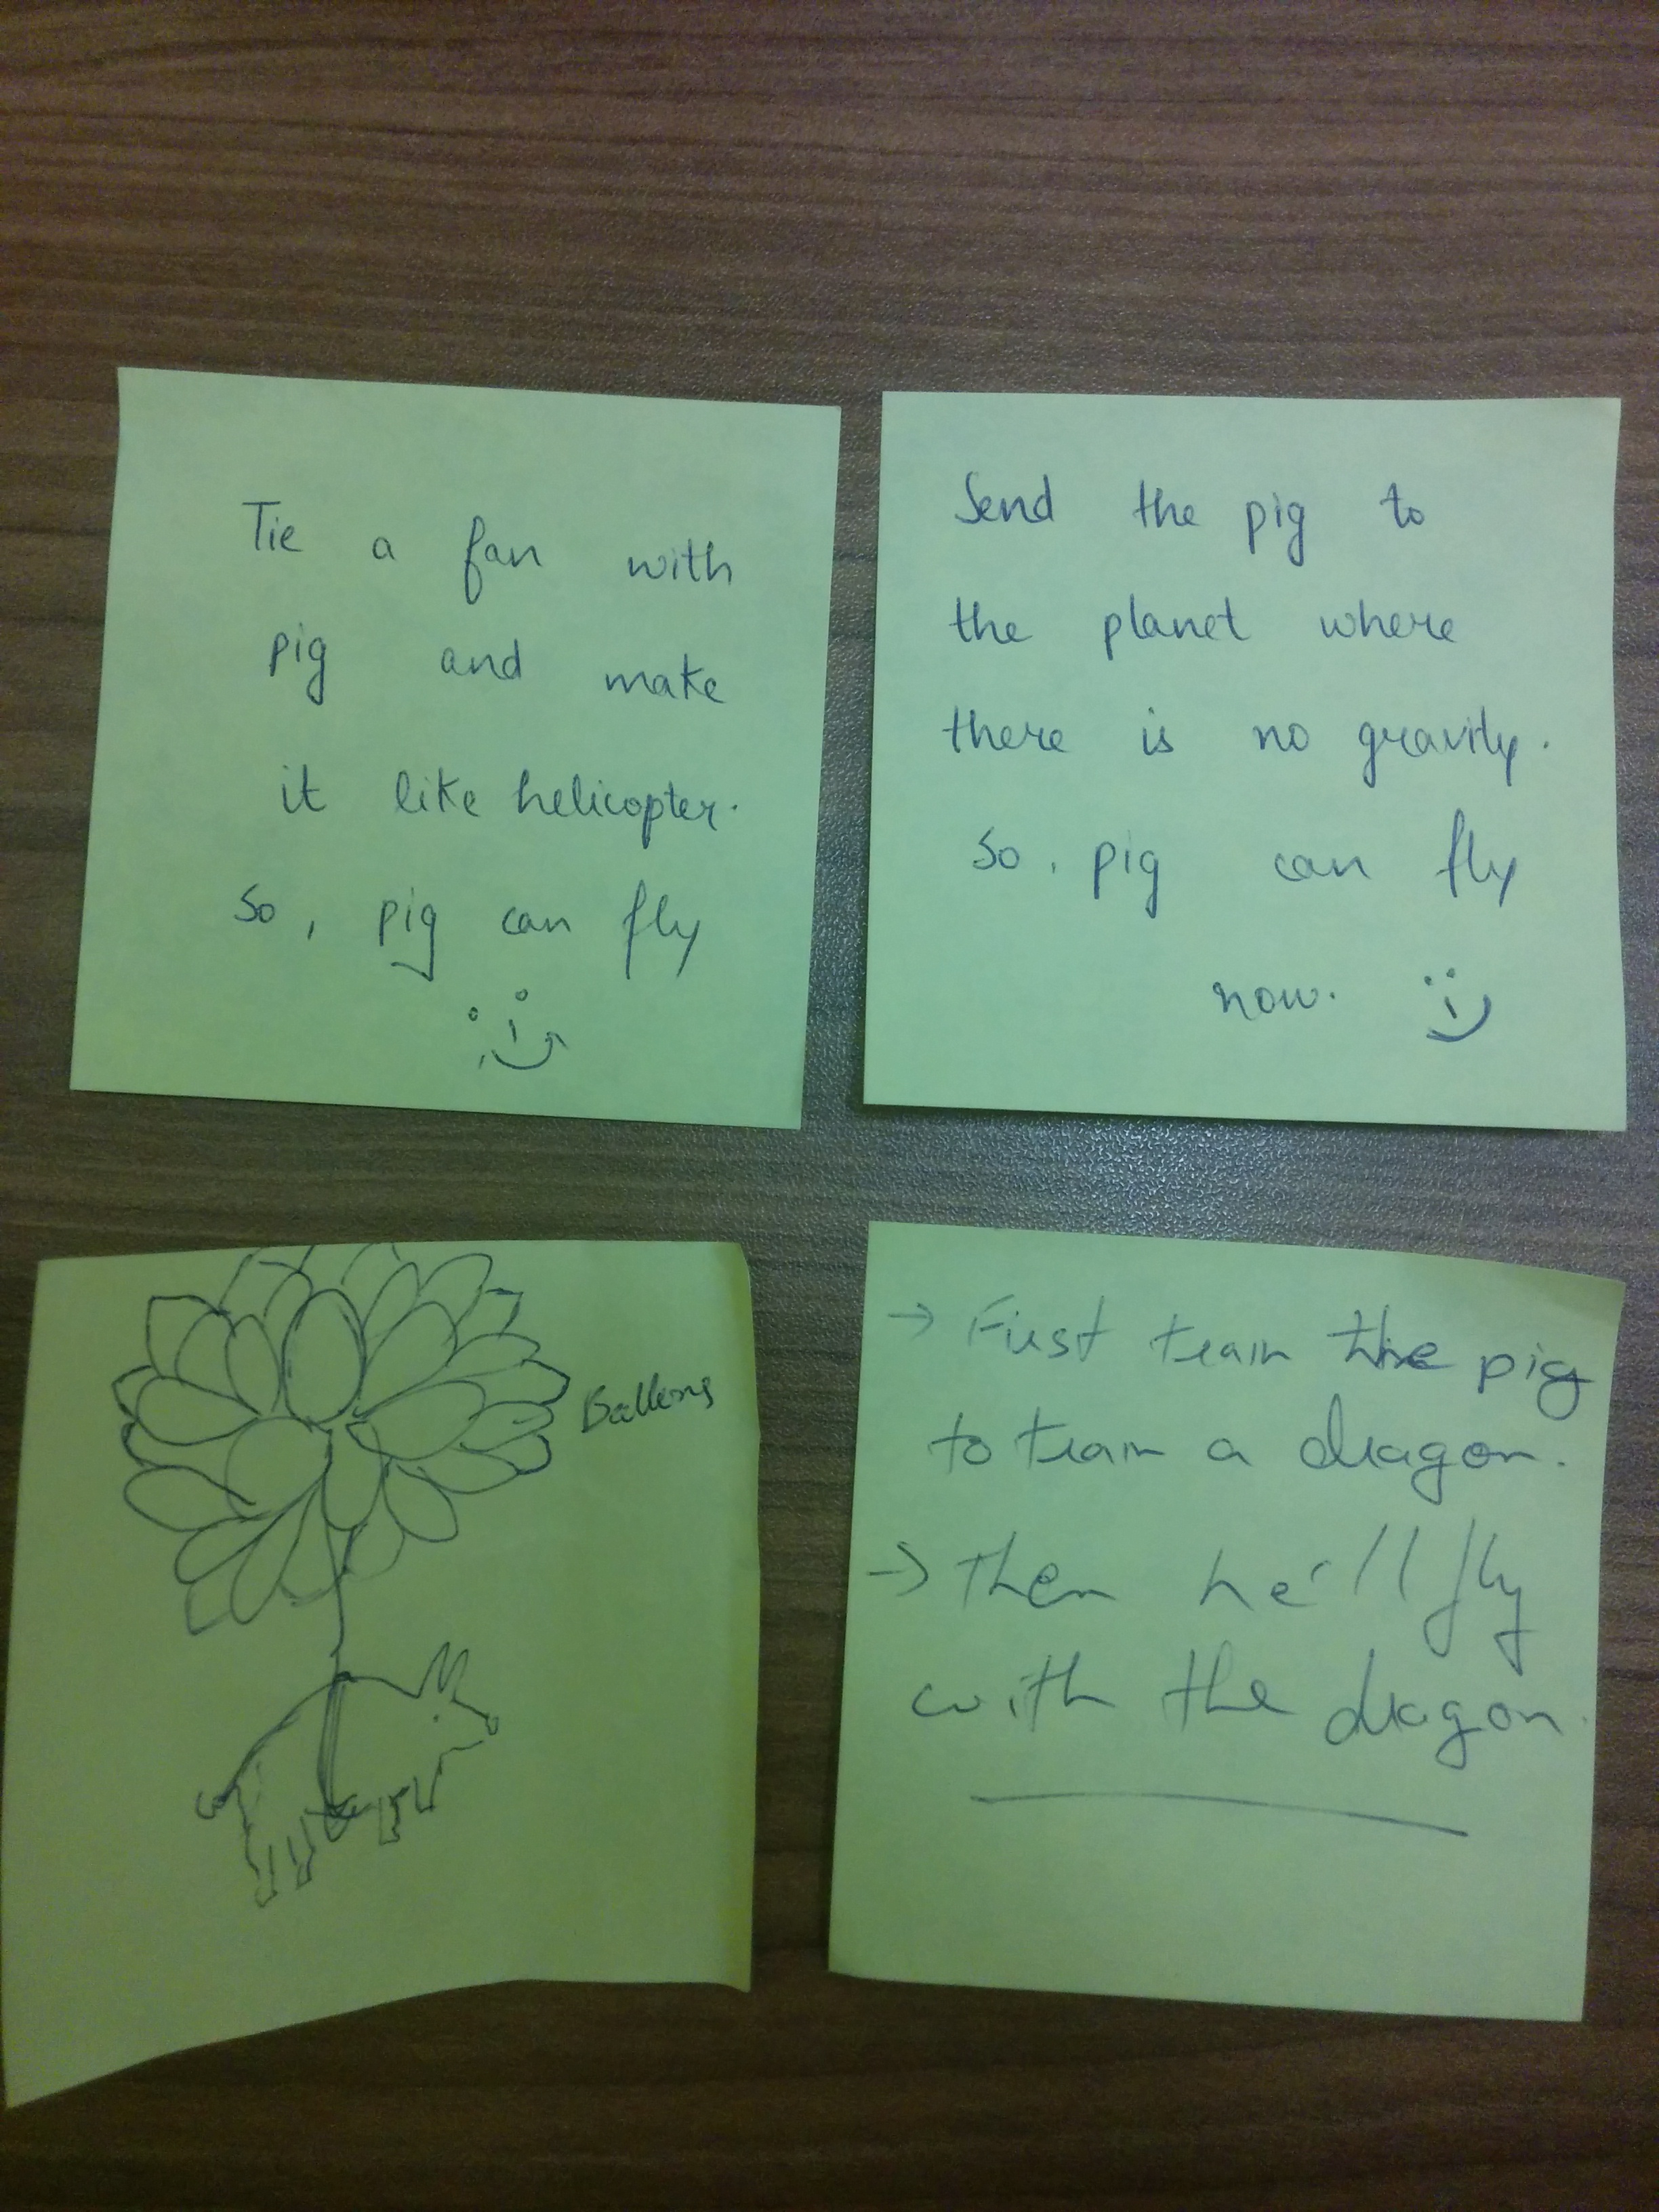 Tie a fan with
pig and make
it like helicopter.
So, pig can fly
Send the pig to
the planet where
there is no gravity.
So, pig can fly
now.
Ballons
→ First train the pig
to train a dragon.
→ Then he'll fly
with the dragon.